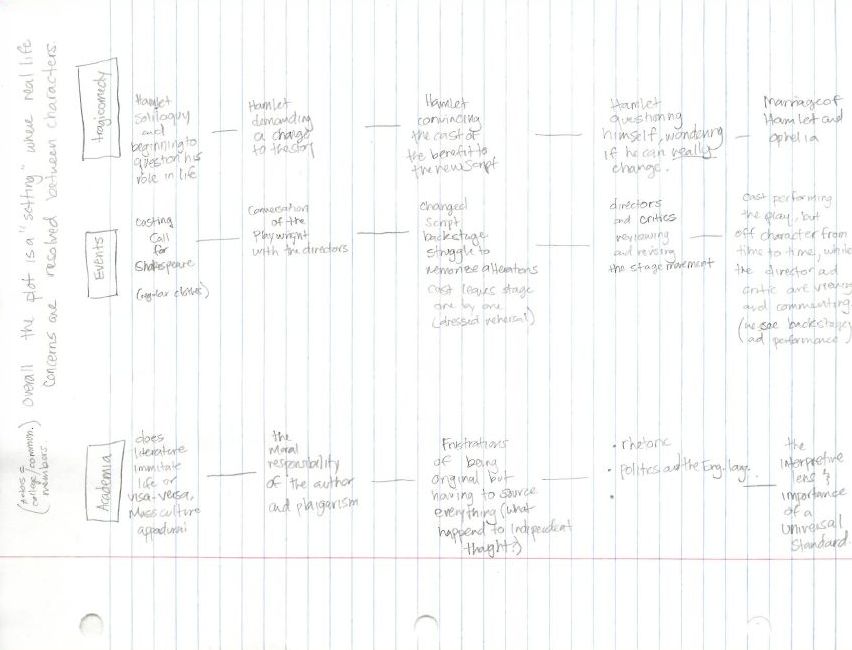 Overall the plot is a "setting" where real life
concerns are resolved between characters.
(Actors =
college/common.
members)
tragicomedy
Hamlet
Soliloquy
and
beginning to
question his
role in life
Hamlet
demanding
a change
to the story
Hamlet
convincing
the cast of
the benefit to
the new script
Hamlet
questioning
himself, wondering
if he can really
change.
Marriage of
Hamlet and
Ophelia
Events
Casting
Call
for
Shakespeare
(regular clothes)
Conversation
of the
Playwright
with the directors
changed
script
backstage
struggle to
memorize alterations
cast leaves stage
one by one
(dressed rehersal)
directors
and critics
reviewing
and revising
the stage movement
Cast performing
the play, but
off character from
time to time, while
the director ad
critic are viewing
and commenting
(we see backstage
ad performance)
Academia
does
literature
immitate
life or
visa-versa,
Mass culture
appadurai
the
Moral
responsibility
of the author
and plaigarism
Frustrations
of being
original but
having to source
everything (what
happend to independent
thaght?)
• rhetoric
• politics and the Eng. lang.
•
the
interpretive
lens &
importance
of a
universal
Standard.